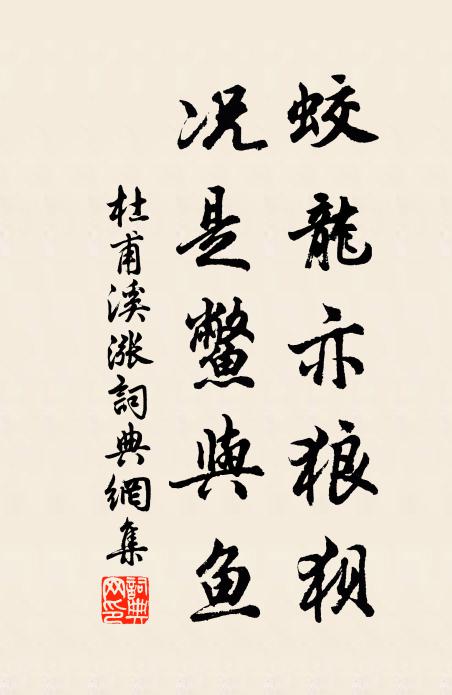 蛟龍亦狼狽
况是鱉與鱼
杜甫溪漲詞典網集
詞典網印